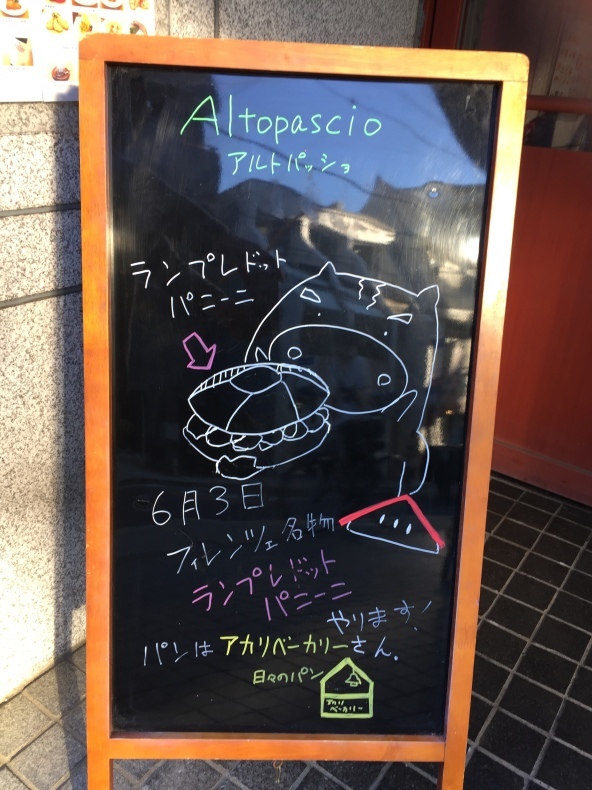 Altopascio
アルトパッショ
ランプレドット
パニーニ
6月3日
フィレンツェ名物
ランプレドット
パニーニ
やります!
パンはアカリベーカリーさん.
日々のパン
アカリ
ベーカリー